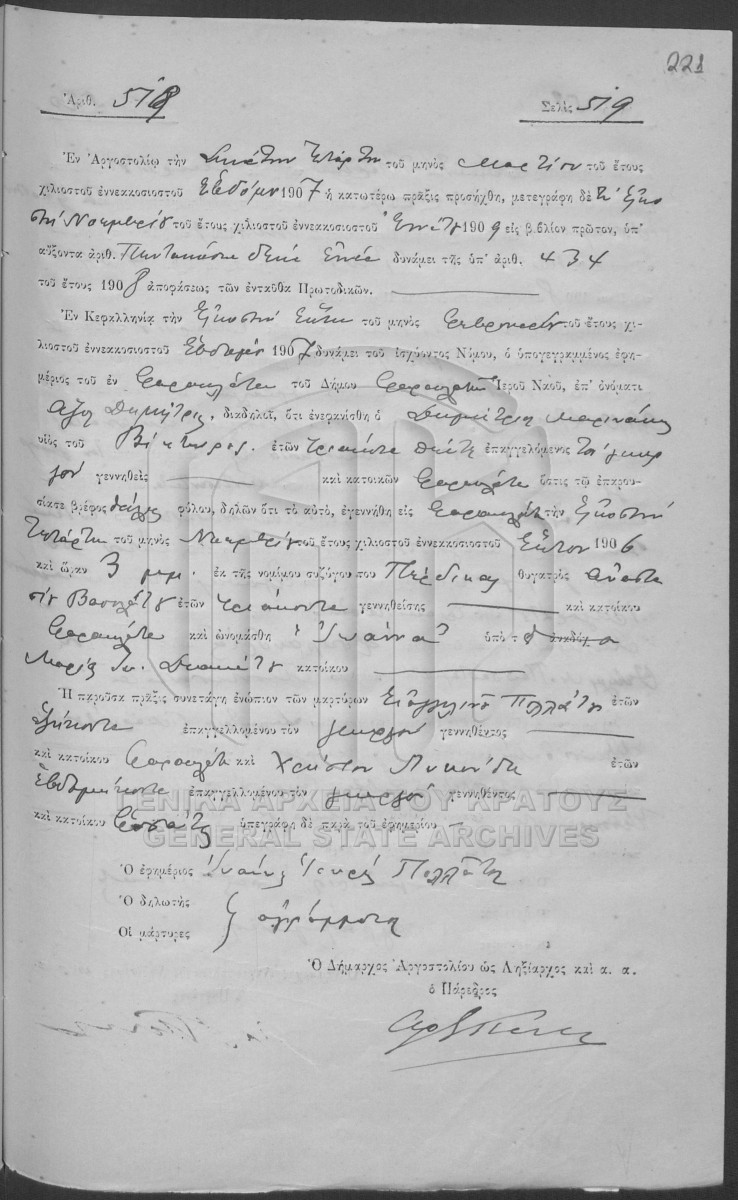 221
Ἀριθ. 518 Σελὶς 519
Ἐν Ἀργοστολίῳ τὴν δεκάτην τετάρτην τοῦ μηνὸς Μαρτίου τοῦ ἔτους
χιλιοστοῦ ἐννεακοσιοστοῦ ἑβδόμου 1907 ἡ κατωτέρω πρᾶξις προσήχθη, μετεγράφη δὲ τῇ εἰκο
στῇ Νοεμβρίου τοῦ ἔτους χιλιοστοῦ ἐννεακοσιοστοῦ ἐννάτου 1909 εἰς βιβλίον πρῶτον, ὑπ'
αὔξοντα ἀριθ. Πεντακόσια δέκα ἐννέα δυνάμει τῆς ὑπ' ἀριθ. 434
τοῦ ἔτους 1908 ἀποφάσεως τῶν ἐνταῦθα Πρωτοδικῶν.
Ἐν Κεφαλληνίᾳ τὴν εἰκοστὴν ἕκτην τοῦ μηνὸς Φεβρουαρίου τοῦ ἔτους χι-
λιοστοῦ ἐννεακοσιοστοῦ ἑβδόμου 1907 δυνάμει τοῦ ἰσχύοντος Νόμου, ὁ ὑπογεγραμμένος ἐφη-
μέριος τοῦ ἐν Φαρακλάτα τοῦ Δήμου Ἱεροῦ Ναοῦ, ἐπ' ὀνόματι
Ἁγίου Δημητρίου, διαδηλοῖ, ὅτι ἐνεφανίσθη ὁ Δημήτριος Μαρινάκης
υἱὸς τοῦ Βίκτωρος ἐτῶν τριάκοντα ἐπαγγελόμενος τὸν γεωρ
γὸν γεννηθεὶς καὶ κατοικῶν Φαρακλάτα ὅστις τῷ ἐπαρου-
σίασε βρέφος θήλεος φύλου, δηλῶν ὅτι τὸ αὐτό, ἐγεννήθη εἰς Φαρακλάτα τὴν εἰκοστὴν
τετάρτην τοῦ μηνὸς Νοεμβρίου τοῦ ἔτους χιλιοστοῦ ἐννεακοσιοστοῦ ἕκτου 1906
καὶ ὥραν 3 μ.μ. ἐκ τῆς νομίμου συζύγου του θυγατρὸς Ἀναστα
σίου ἐτῶν τριάκοντα γεννηθείσης καὶ κατοίκου
Φαρακλάτα καὶ ὠνομάσθη "Ἰωάννα" ὑπὸ τ ἀναδόχο
Μαρίας κατοίκου
Ἡ παροῦσα πρᾶξις συνετάγη ἐνώπιον τῶν μαρτύρων Εὐαγγελινοῦ Πολλάτου ἐτῶν
ἑξήκοντα ἐπαγγελλομένου τὸν γεωργὸν γεννηθέντος
καὶ κατοίκου Φαρακλάτα καὶ Χρήστου ἐτῶν
ἑβδομήκοντα ἐπαγγελλομένου τὸν γεωργὸν γεννηθέντος
καὶ κατοίκου ὑπεγράφη δὲ παρὰ τοῦ ἐφημερίου
ΓΕΝΙΚΑ ΑΡΧΕΙΑ ΤΟΥ ΚΡΑΤΟΥΣ
GENERAL STATE ARCHIVES
Ὁ ἐφημέριος Ἰωάννης Ἱερεὺς Πολλάτος
Ὁ δηλωτὴς
Οἱ μάρτυρες } ἀγράμματοι
Ὁ Δήμαρχος Ἀργοστολίου ὡς Ληξίαρχος καὶ α. α.
ὁ Πάρεδρος